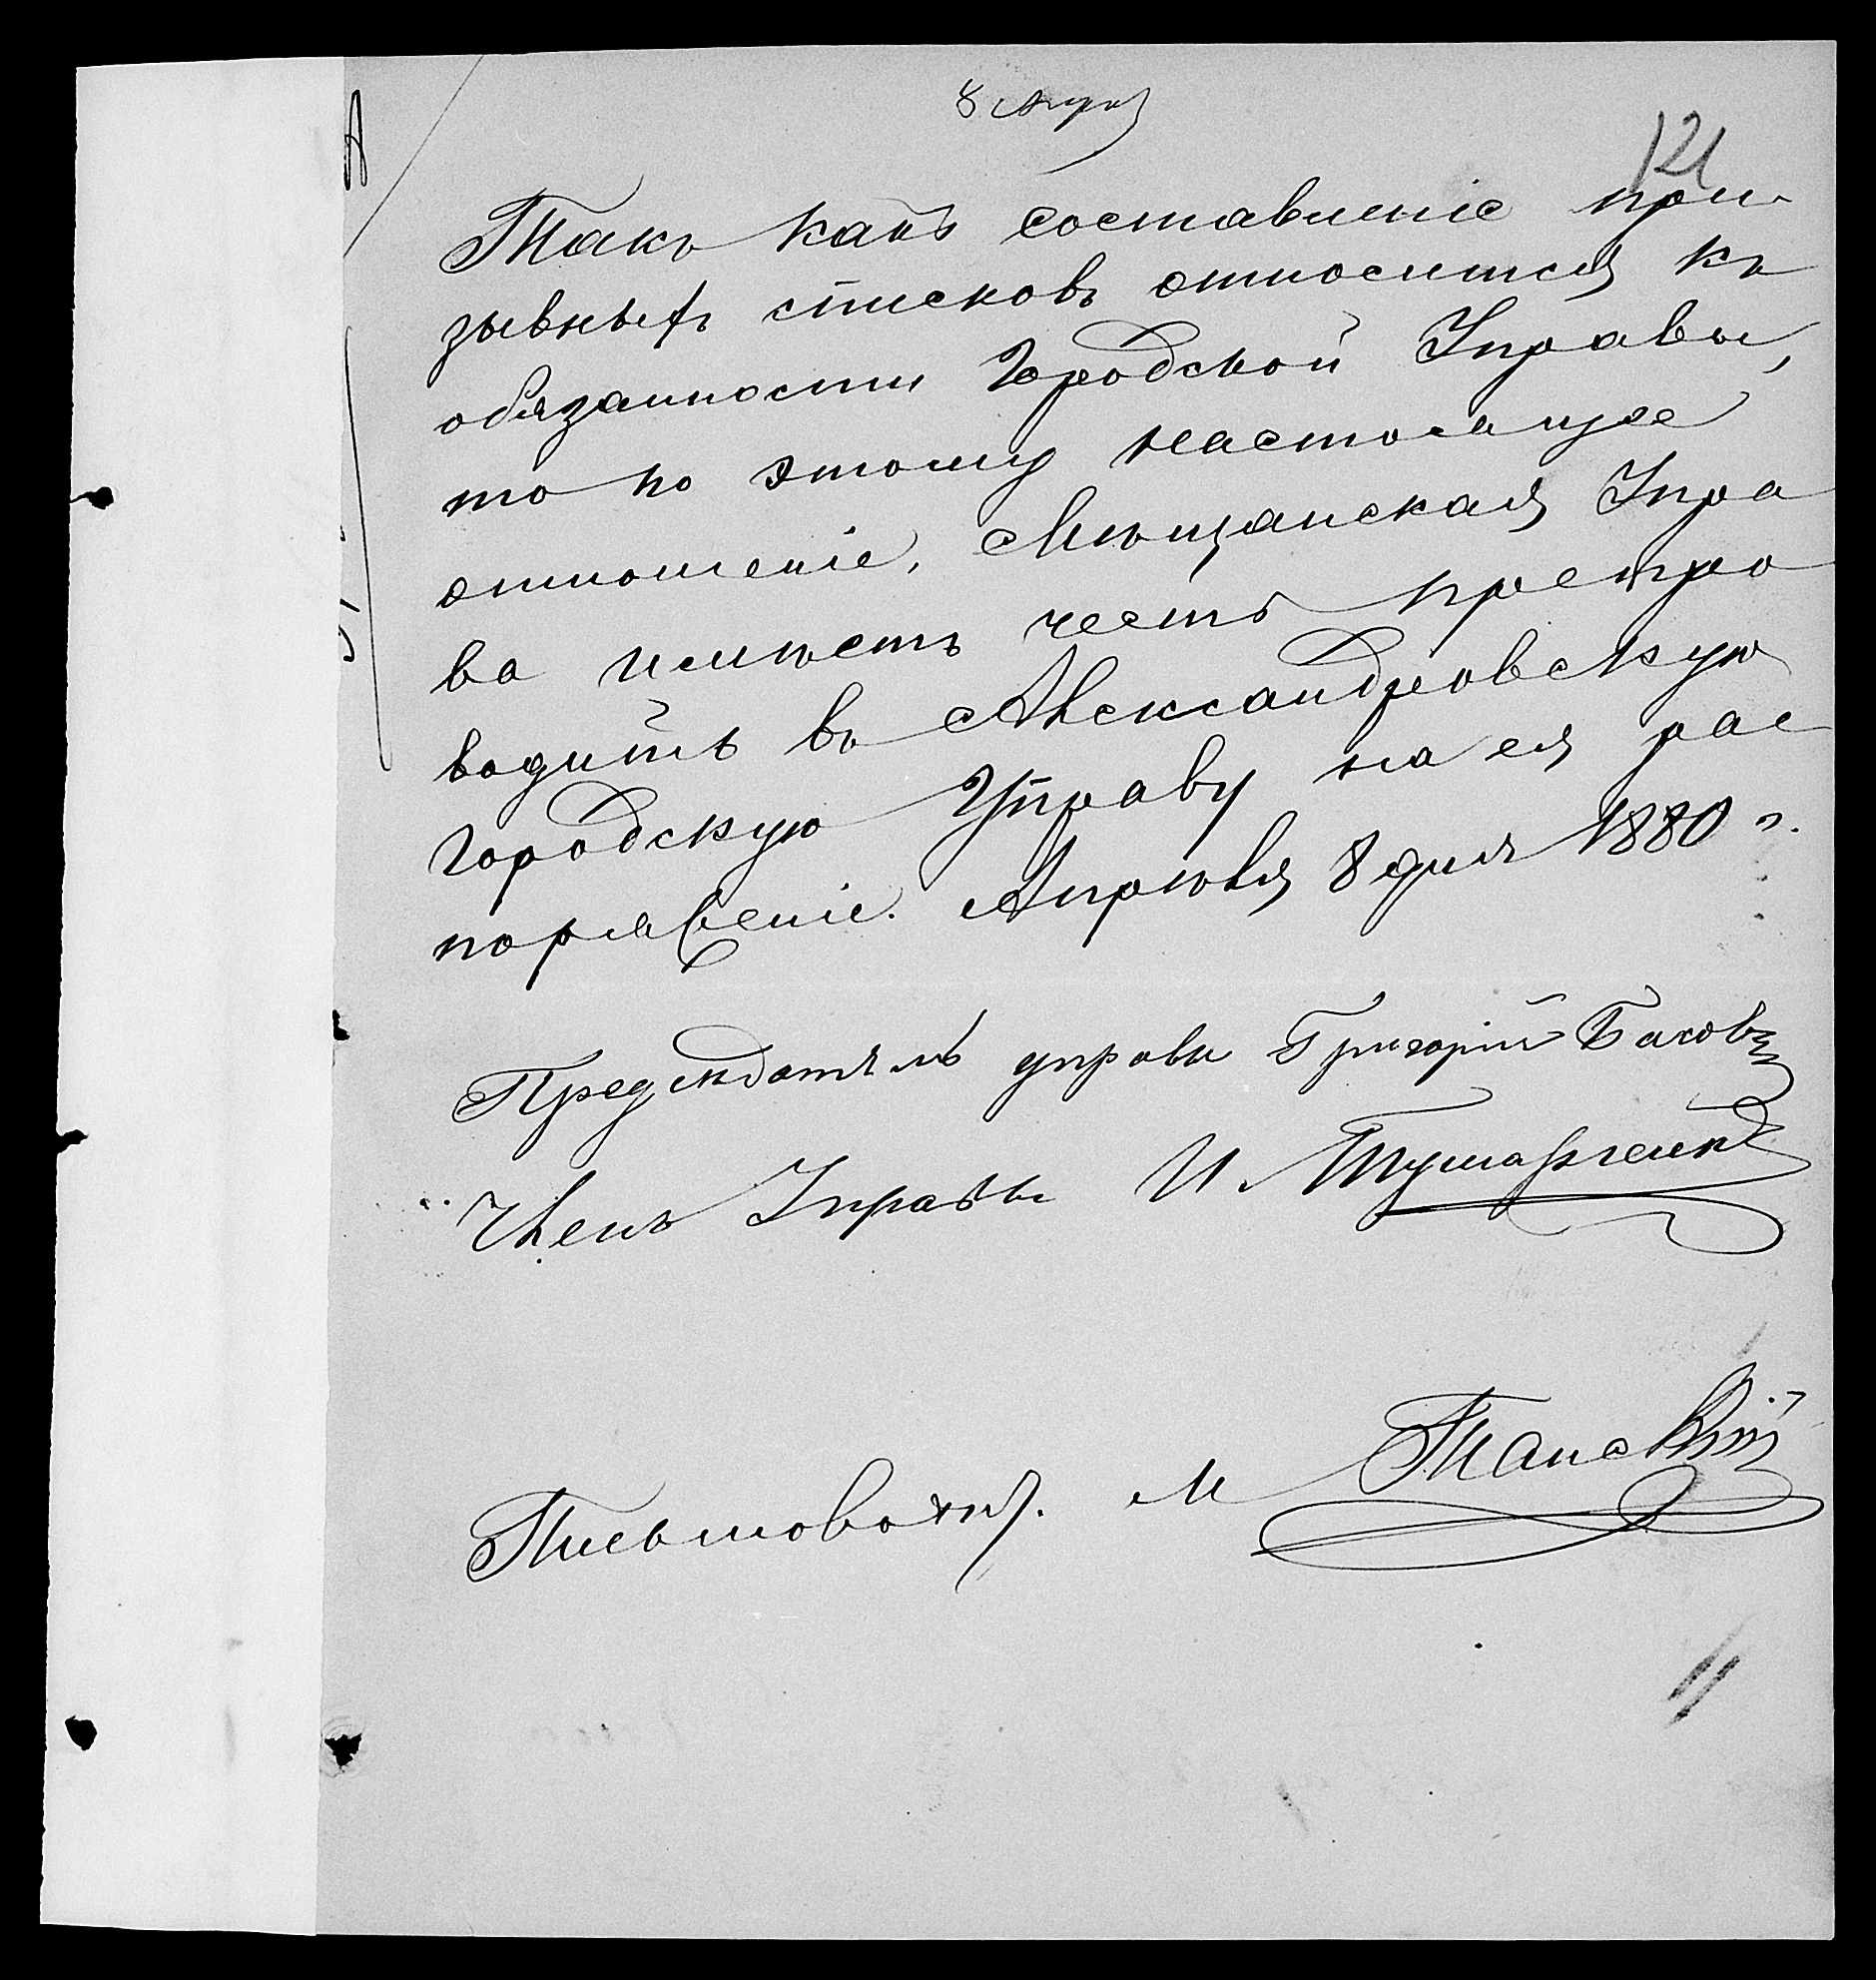 8 Апр
121
Такъ какъ составленіе при-
зывныхъ списковъ относится къ
обязанности Городской Управы,
то по этому настоящее
отношеніе, Мѣщанская Упра
ва имѣетъ честь препро
водить въ Александровскую
Городскую Управу на ея рас
поряженіе. Апрѣля 8 дня 1880 г.
Предсѣдатель управы Григорій
Членъ Управы И.
Письмовод. М Танскій